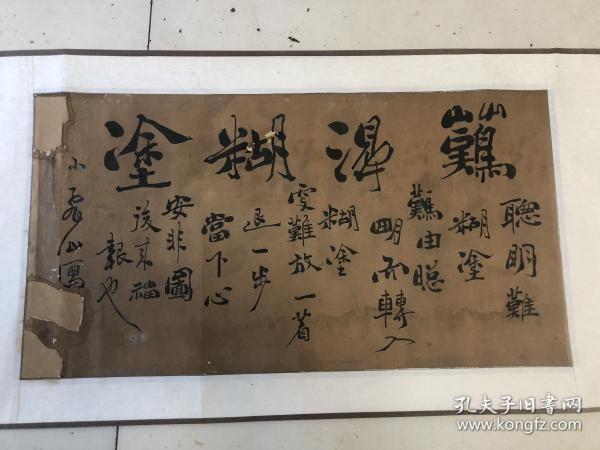 難得糊塗
聰明難
糊塗
難由聪
明而轉入
糊塗
更難放一着
退一步
當下心
安非圖
後来福
報也
孔夫子旧书网
www.kongfz.com